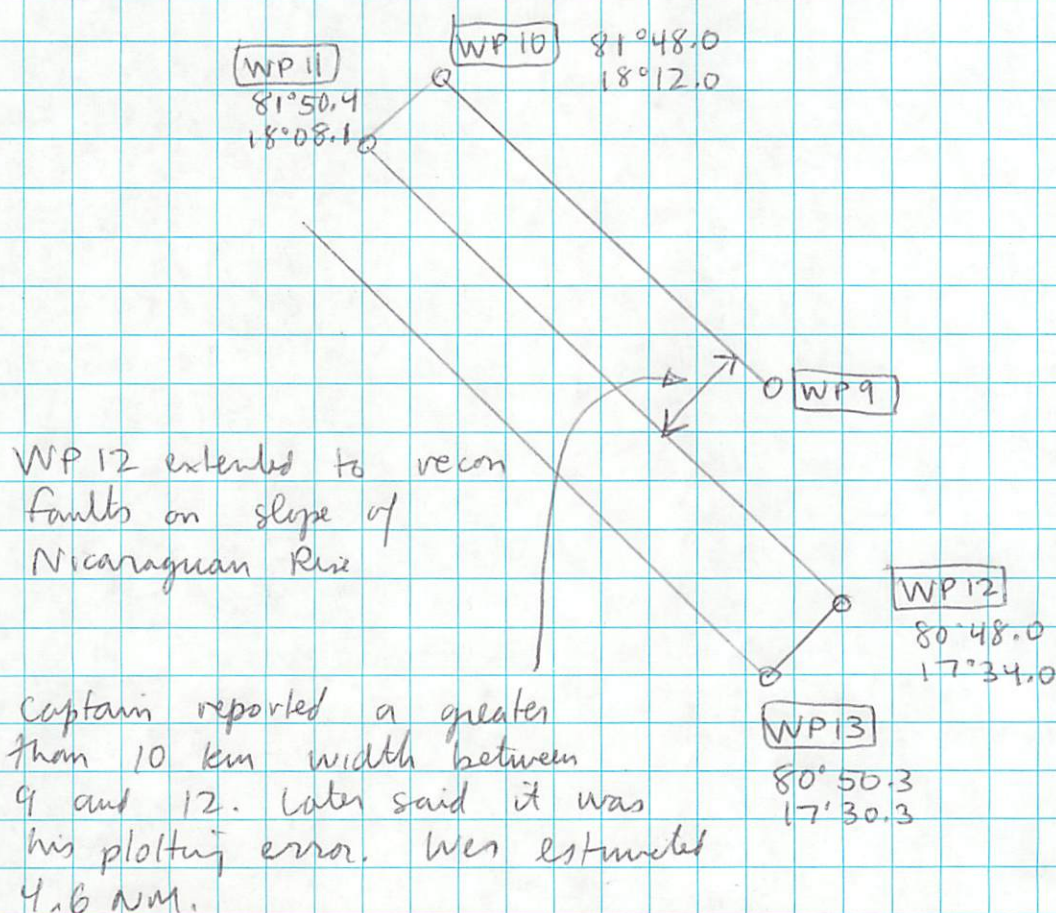 WP 10 81°48.0
18°12.0
WP 11
81°50.4
18°08.1
WP 9
WP 12 extended to recon
faults on slope of
Nicaraguan Rise
WP 12
80°48.0
17°34.0
WP 13
80°50.3
17°30.3
Captain reported a greater
than 10 km width between
9 and 12. Later said it was
his plotting error. Wes estimated
4.6 NM.